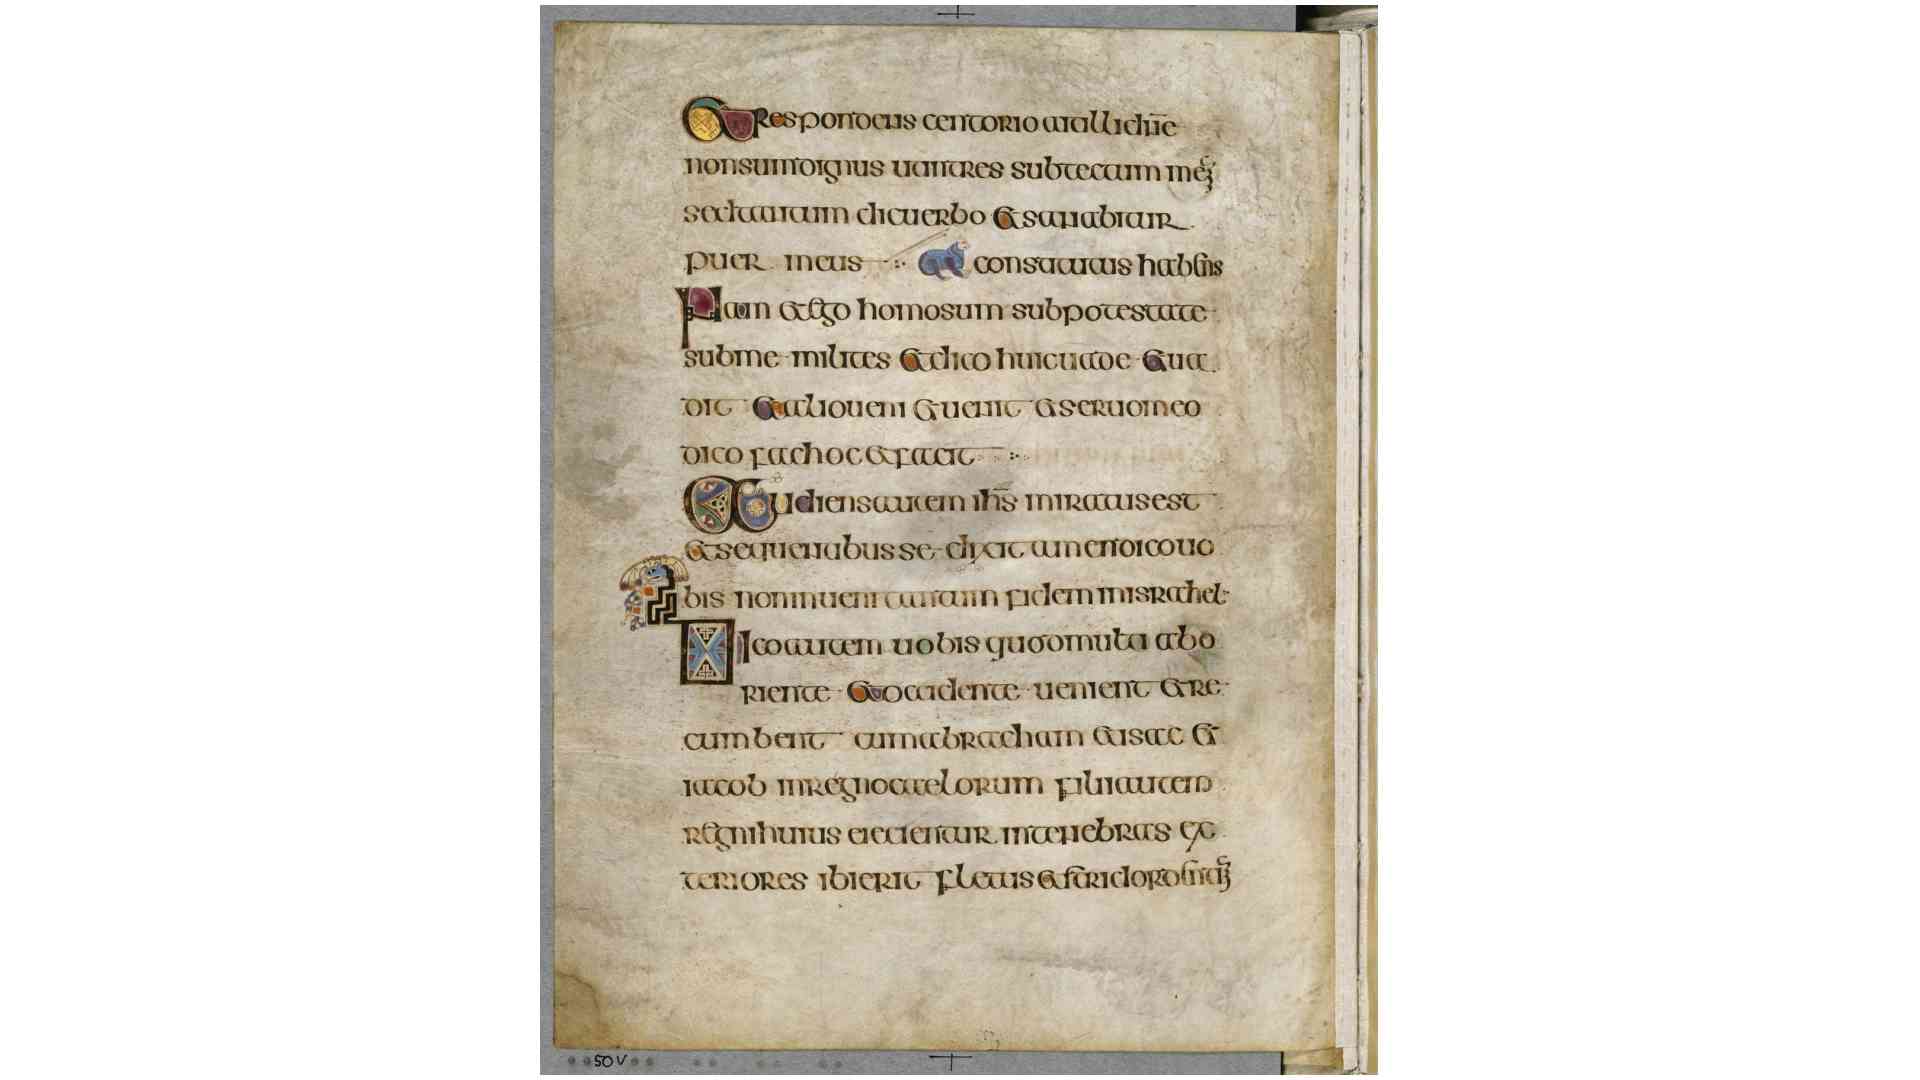 Et respondens centorio ait illi dn̄e
non sum dignus ut intres sub tectum meū
sed tantum dic uerbo et sanabitur
puer meus constitutus habens
Nam et ego homo sum sub potestate
sub me milites et dico huic uade et ua
dit et alio ueni et uenit et seruo meo
dico fac hoc et facit
Audiens autem ih̄s miratus est
et sequentibus se dixit amen dico uo
bis non inueni tantam fidem in israhel
Dico autem uobis quod multi ab o
riente et occidente uenient et re
cumbent cum abracham et isac et
iacob in regno caelorum filii autem
regni huius eiecientur in tenebras ex
teriores ibi erit fletus et stridor dentiū
50V